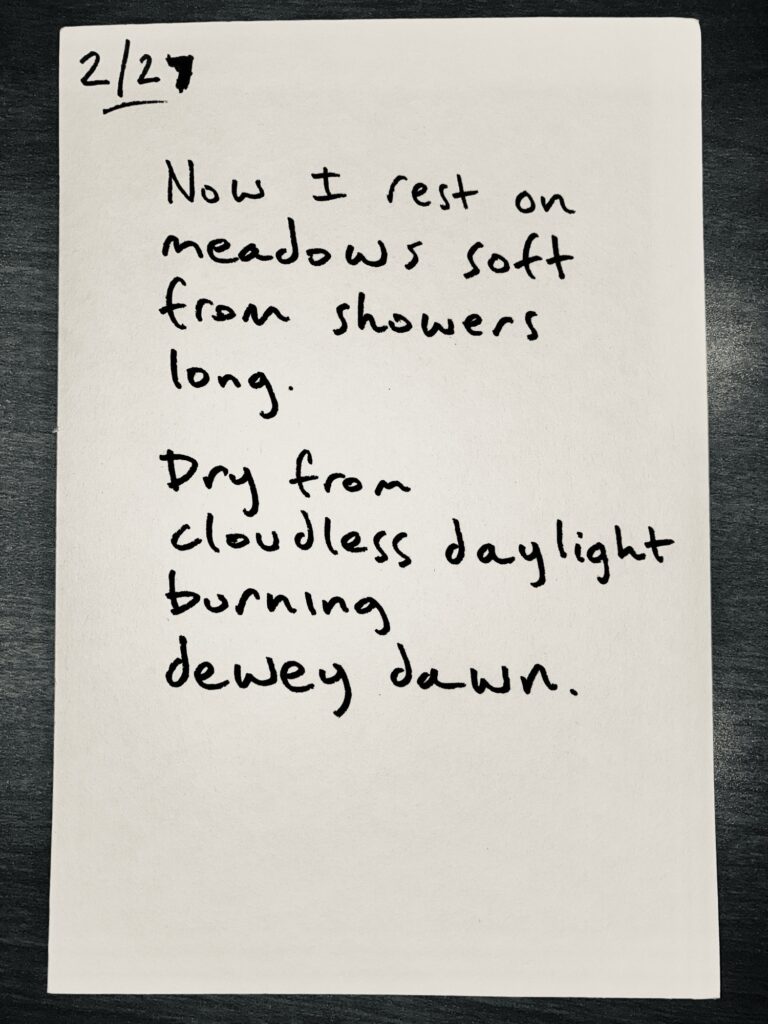 2/27
Now I rest on
meadows soft
from showers
long.
Dry from
cloudless daylight
burning
dewey dawn.